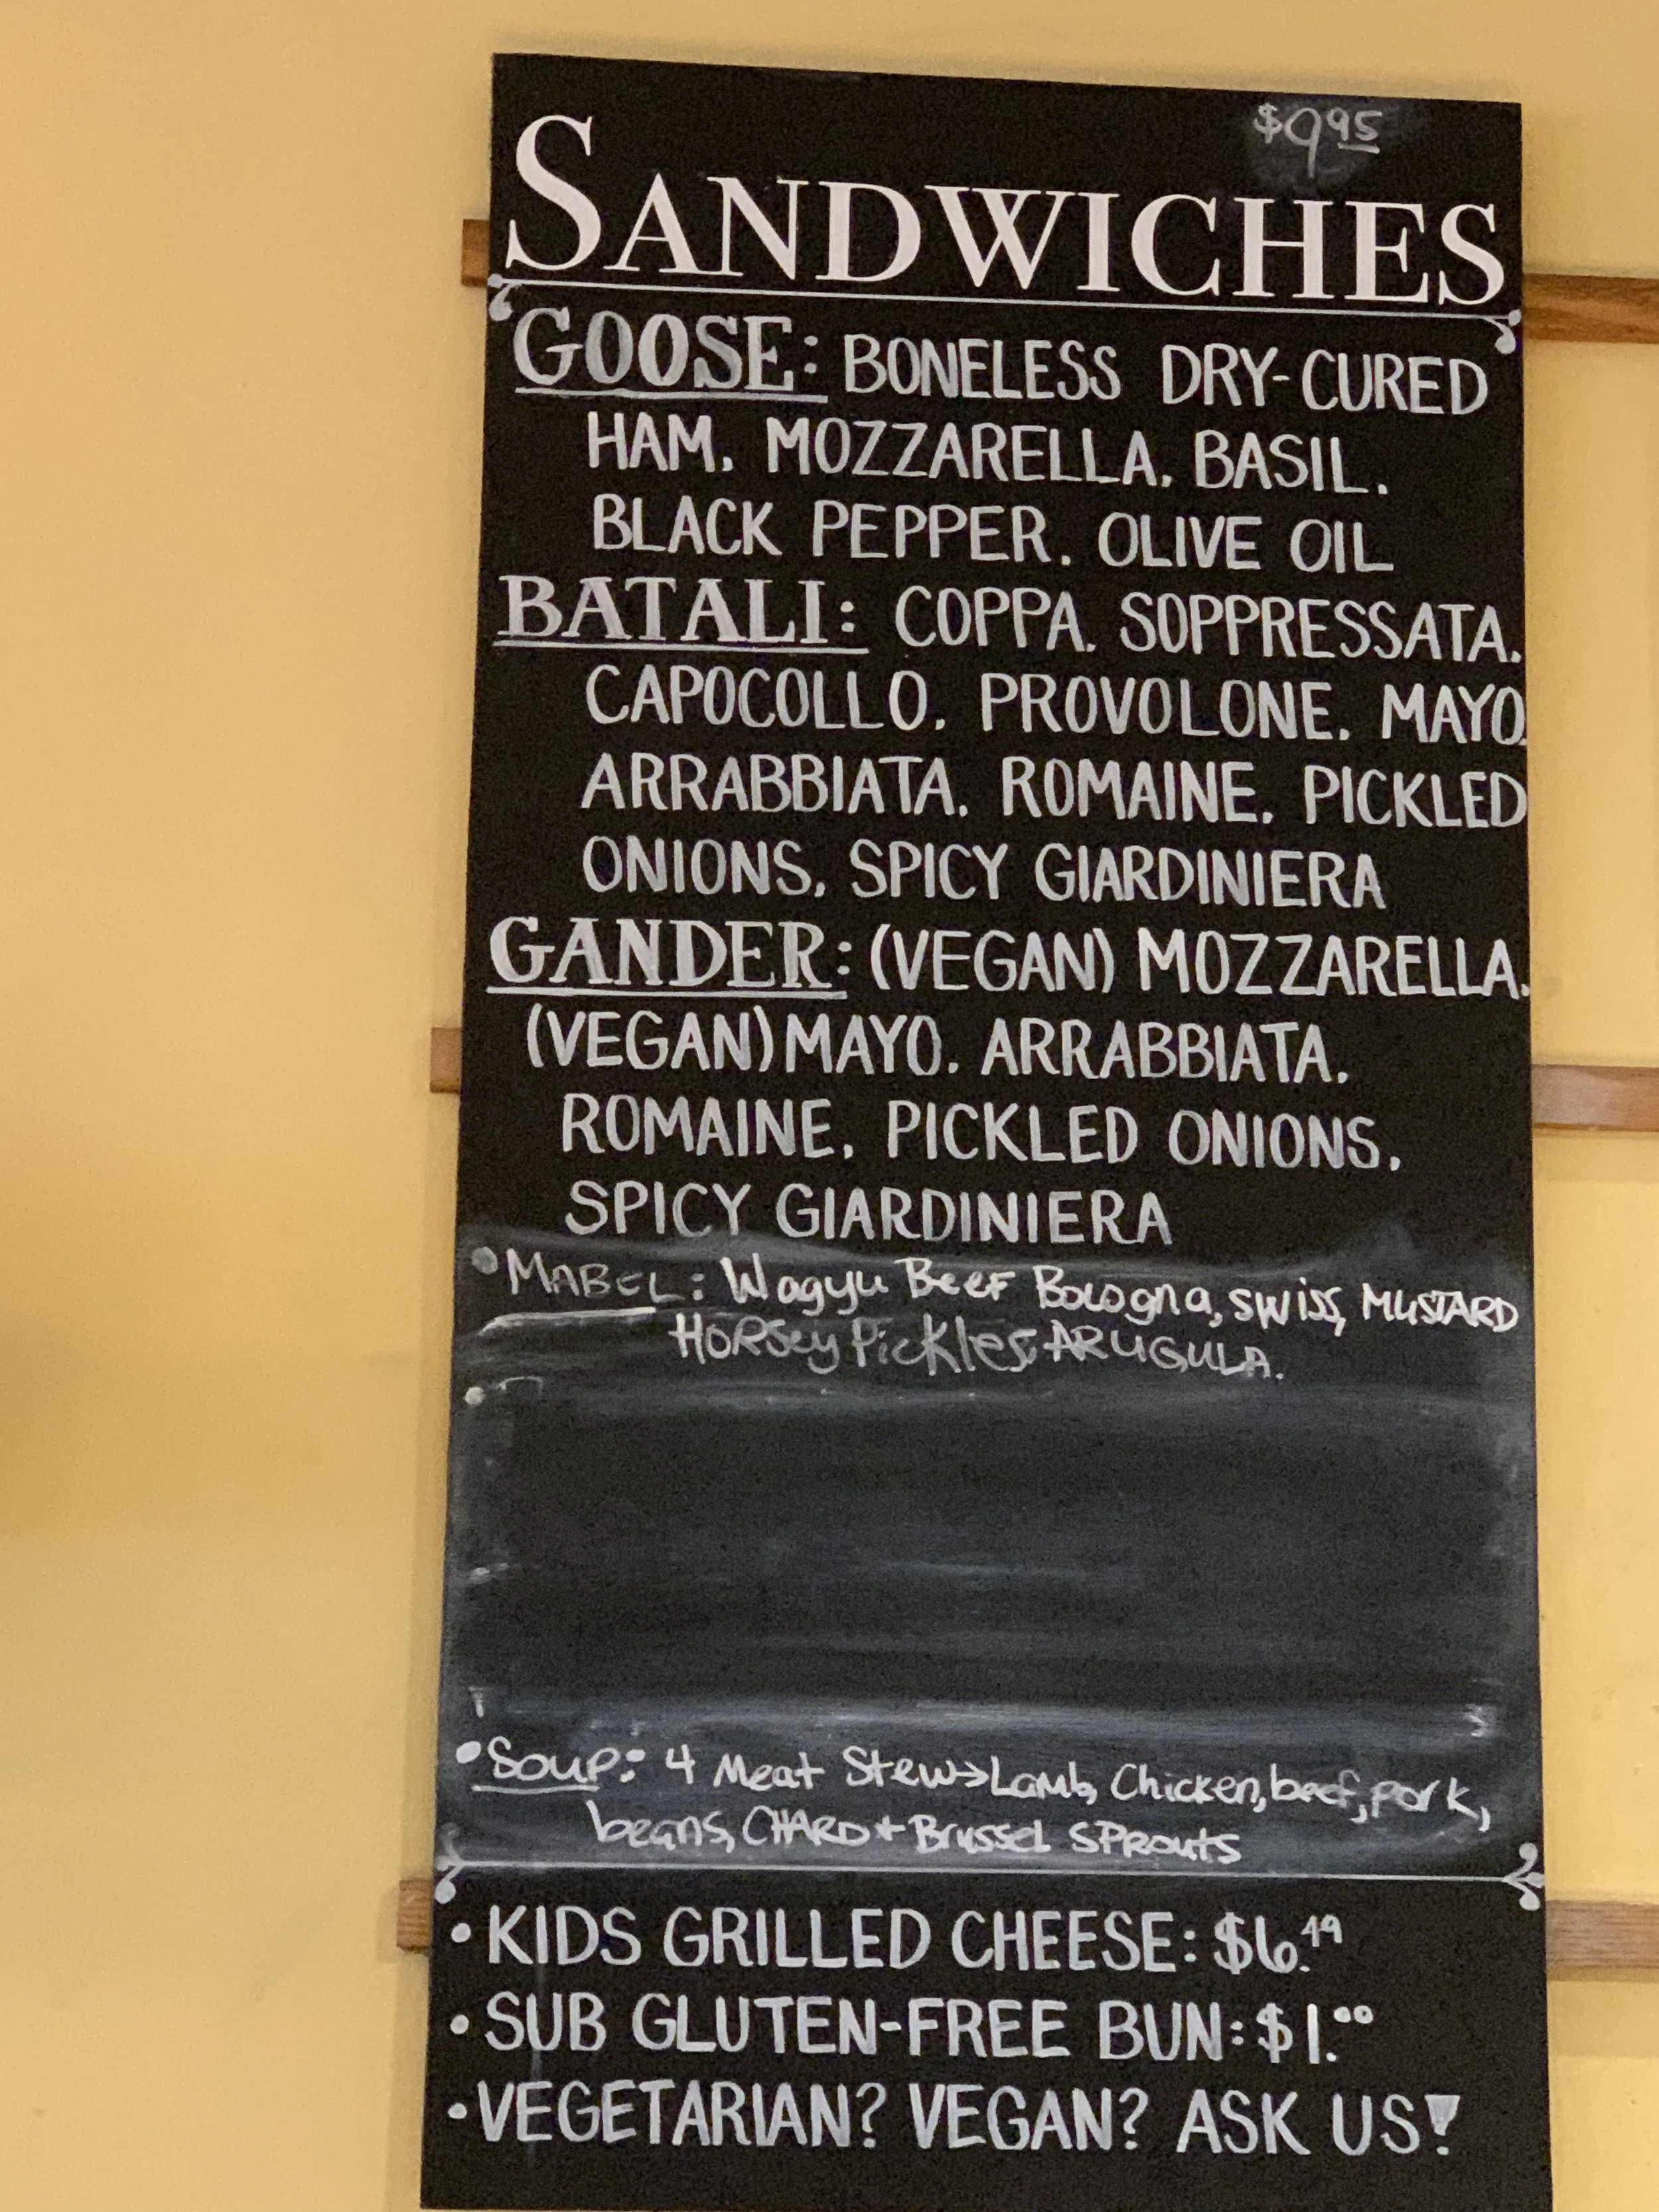 $9.95
SANDWICHES
GOOSE: BONELESS DRY-CURED
HAM, MOZZARELLA, BASIL,
BLACK PEPPER, OLIVE OIL
BATALI: COPPA, SOPPRESSATA,
CAPOCOLLO, PROVOLONE, MAYO,
ARRABBIATA, ROMAINE, PICKLED
ONIONS, SPICY GIARDINIERA
GANDER: (VEGAN) MOZZARELLA,
(VEGAN) MAYO, ARRABBIATA,
ROMAINE, PICKLED ONIONS,
SPICY GIARDINIERA
• MABEL: Wagyu Beef Bologna, swiss, MUSTARD
HORSey Pickles, ARUGULA.
• Soup: 4 Meat Stew→Lamb, Chicken, beef, pork,
beans, CHARD + Brussel SProuts
• KIDS GRILLED CHEESE: $6.49
• SUB GLUTEN-FREE BUN: $1.00
• VEGETARIAN? VEGAN? ASK US!